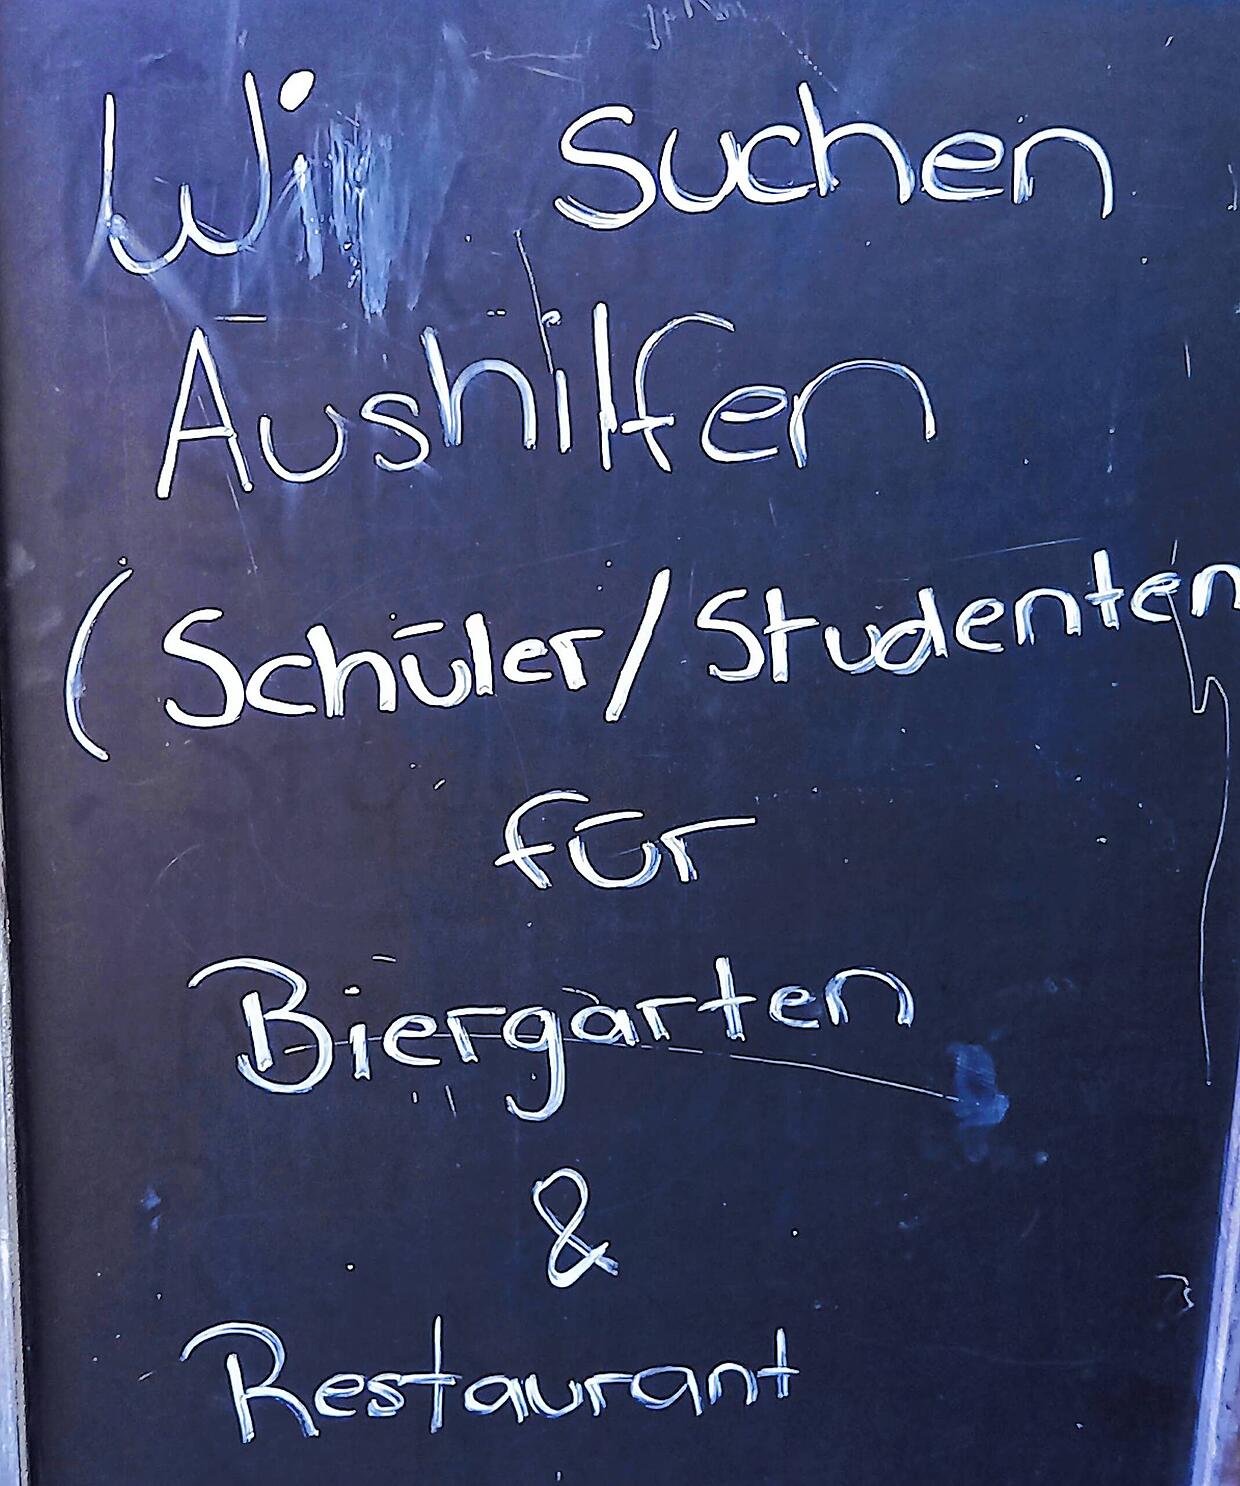 Wir suchen
Aushilfen
(Schüler/Studenten
für
Biergarten
&
Restaurant